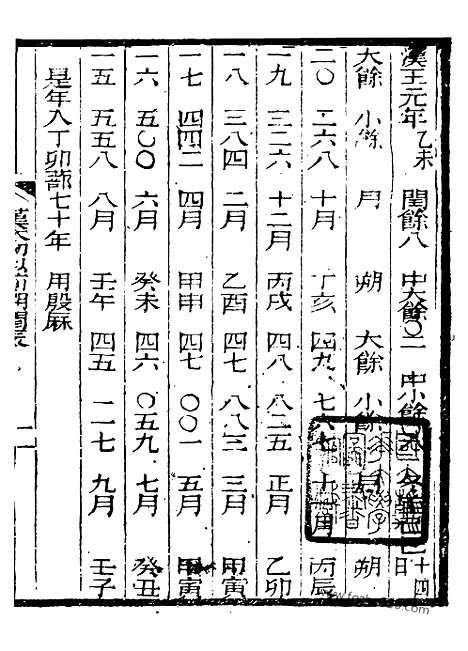 漢王元年乙未 閏餘八 中大餘〇二 中小餘 十四日
大餘 小餘 月 朔 大餘 小餘 月 朔
二〇 二六八 十月 丁亥 四九 七六七 十一月 丙辰
一九 三二六 十二月 丙戌 四八 八二五 正月 乙卯
一八 三八四 二月 乙酉 四七 八八三 三月 甲寅
一七 四四二 四月 甲申 四七 〇〇一 五月 甲寅
一六 五〇〇 六月 癸未 四六 〇五九 七月 癸丑
一五 五五八 八月 壬午 四五 一一七 九月 壬子
是年入丁卯蔀七十年 用殷厤
漢太初以前朔閏表 二